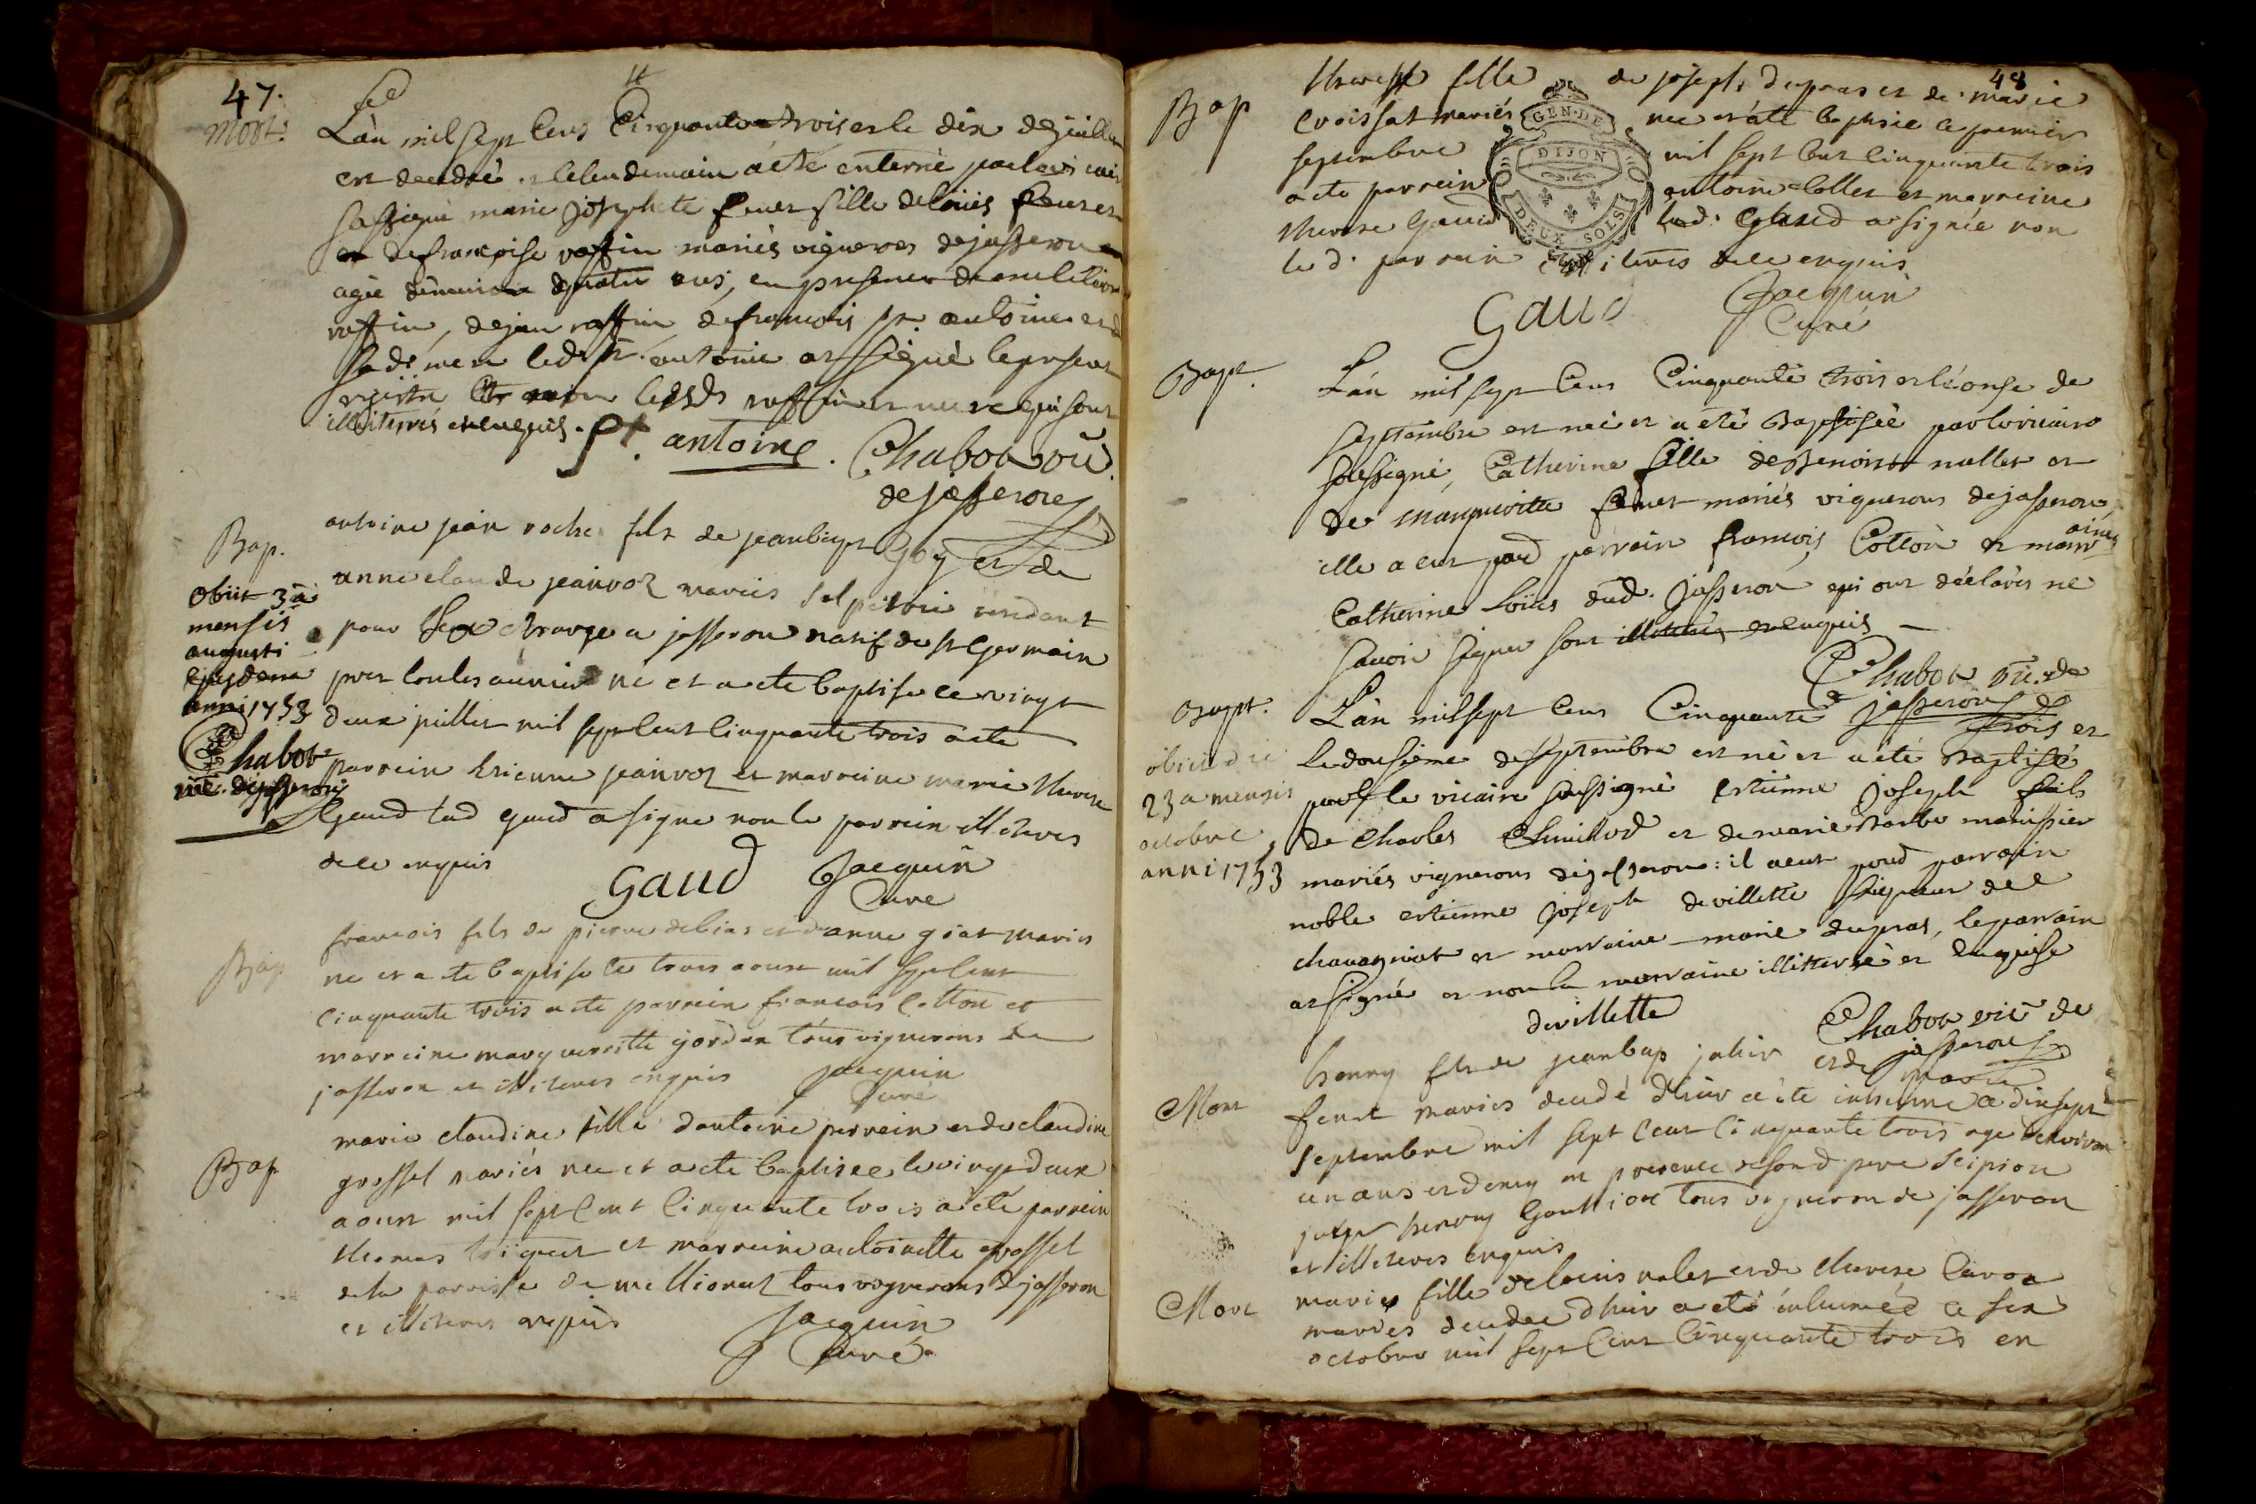 47.
Mort.
L'an mil sept cens Cinquante trois et le dix de juillet
est decedeé et le lendemain a été enterreé par le vicaire
sassigné marie josephete feuet fille de loüis feuet et
de françoise raffin mariés vignerons de jasseron
agée d'environ quatre ans, en presence de
raffin, de jean raffin, de francois st. antoine et de
sad. mere led. st. antoine at signé le present
registre et non lesds raffin et mere qui sont
illitterés et enquis. St. antoine. Chabot vic.
de jasseron
Bap.
antoine jean roch fils de jean bapt goy et de
anne claude jeanvoz mariés salpetrier residant
pour a jasseron natif de st germain
pres lons le saunier né et a ete baptise le vingt
deux juillet mil sept cent cinquante trois a ete
parrein etienne jeanvoz et marreine marie therese
gaud lad gaud a signe non le parrein illiteres
de ce enquis
Gaud Jacquin
Curé
obiit 3a
mensis
augusti
ejusdem
anni 1753
Chabot
vic. de jasseron
Bap
francois fils de pierre debias et d'anne giat maries
ne et a ete baptise le trois aoust mil sept cent
cinquante trois a ete parrein francois cotton et
marreine margueritte gordan tous vignerons de
jasseron et illiteres enquis Jacquin
Curé
Bap
marie claudine fille d'antoine perrein et de claudine
grosset mariés nee et a ete baptisee le vingt deux
aoust mil sept cent cinquante trois a été parrein
thomas et marreine antoinette grosset
de la parroisse de meillionat tous vignerons de jasseron
et illiteres enquis
Jacquin
Curé
48
Bap
therese fille de joseph dupras et de marie
croissat mariés nee et a été baptisée le premier
septembre mil sept cent cinquante trois
a ete parrein antoine collet et marreine
therese gaud lad. gaud a signée non
le d. parrein illiteres de ce enquis
GEN. DE
DIJON
DEUX SOLS
Gaud Jacquin
Curé
Bapt.
L'an mil sept cens Cinquante trois et le onse de
septembre est neé et a été Baptisée par le vicaire
soussigné, Catherine fille de Benoist nallet et
de marguerite feuet mariés vignerons de jasseron
elle a eut pour parrain francois Cotton et marraine
Catherine Loüis dud. jasseron, qui ont déclarés ne
savoir signer sont illitterés et enquis
Chabot vic. de
jasseron
Bapt.
L'an mil sept cens Cinquante trois et
le dousieme de septembre est né et a été Baptisé
par le vicaire soussigné estienne joseph fils
de charles Chmillod et de marie Barbe manissier
mariés vignerons de jasseron: il a eut pour parrain
noble estienne joseph de villette seigneur de
chavagniat et marraine marie dupras, le parrain
at signé et non la marraine illitterée et enquise
obiit die
23a mensis
octobre
anni 1753
devillette Chabot vic de
jasseron
Mort
henry fils de jean bap jahir et de marie
feuet mariés decedé d'hier a été inhumé ce dix sept
septembre mil sept cent cinquante trois age d'environ
un ans et demy en presence de son d. pere scipion
henry gouttion tous vigneron de jasseron
et illiteres enquis
Mort
marie fille de louis nalet et de therese caron
mariés decedee d'hier a été inhumée ce six
octobre mil sept cent cinquante trois en